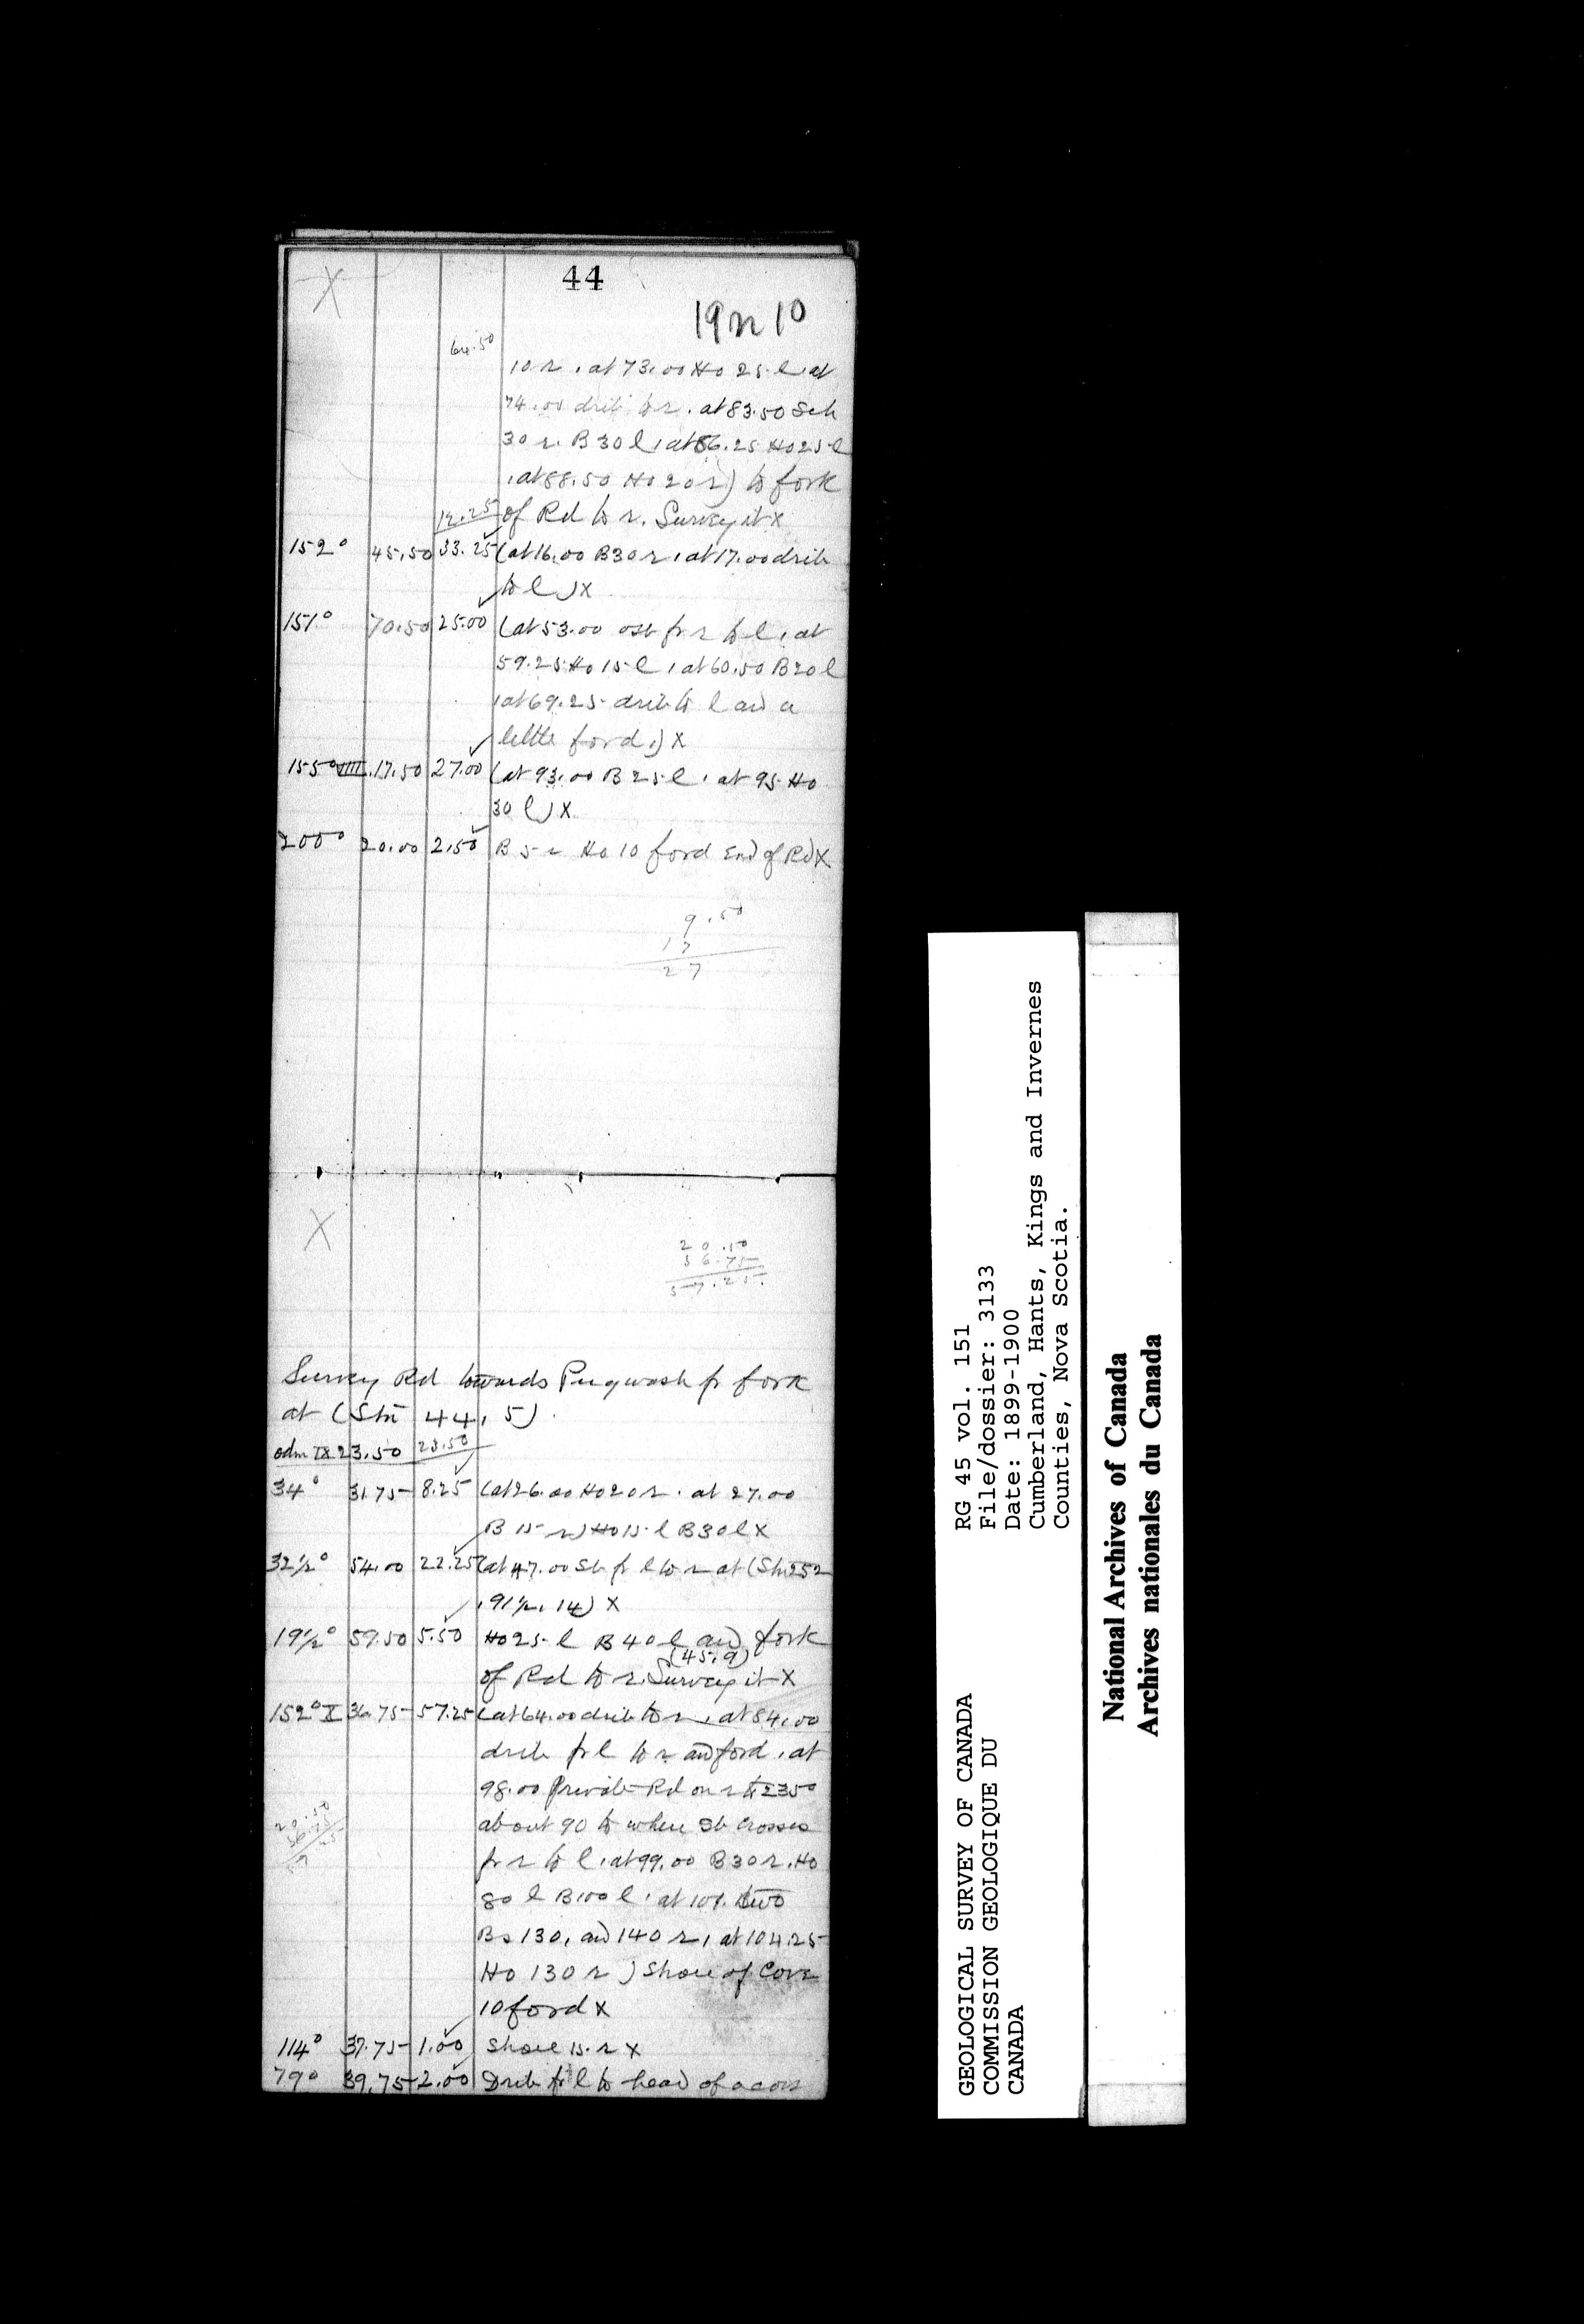 44
X
19 n 10
64.50
10 r. at 73.00 Ho 25 l, at
74.00 drib to r. at 83.50 Sch
30 r. B 30 l, at 86.25 Ho 25 l
, at 88.50 Ho 20 r) to fork
12.25 of Rd to r. Survey it X
152° 45.50 33.25 (at 16.00 B 30 r, at 17.00 drib
to l) X
151° 70.50 25.00 (at 53.00 fr r to l, at
59.25 Ho 15 l, at 60.50 B 20 l
, at 69.25 drib to l and a
little ford.) X
155° VIII. 17.50 27.00 (at 93.00 B 25 l, at 95 Ho
30 l) X
200° 20.00 2.50 B 5 r Ho 10 ford End of Rd X
9.50
17
27
X
20.50
36.75
57.25
Survey Rd towards Pugwash fr fork
at (Stn 44, 5).
odm IX 23.50 23.50
34° 31.75 8.25 (at 26.00 Ho 20 r. at 27.00
B 15 r) Ho 15 l B 30 l X
32½° 54.00 22.25 (at 47.00 Sb fr l to r at (Stn 252
, 91½, 14) X
19½° 59.50 5.50 Ho 25 l B 40 l and fork
(45, 9)
of Rd to r. Survey it X
152° X 36.75 57.25 (at 64.00 drib to r, at 84.00
drib fr l to r and ford, at
98.00 private Rd on r 235°
about 90 to where Sb crosses
20.50
36.75
57.25
fr r to l, at 99.00 B 30 r. Ho
80 l B 100 l, at 101. two
Bs 130, and 140 r, at 104.25
Ho 130 r) Shore of Cove
10 ford X
114° 37.75 1.00 Shore 15 r X
79° 39.75 2.00 Drib fr l to head of a cove
GEOLOGICAL SURVEY OF CANADA
COMMISSION GEOLOGIQUE DU
CANADA
RG 45 vol. 151
File/dossier: 3133
Date: 1899-1900
Cumberland, Hants, Kings and Invernes
Counties, Nova Scotia.
National Archives of Canada
Archives nationales du Canada